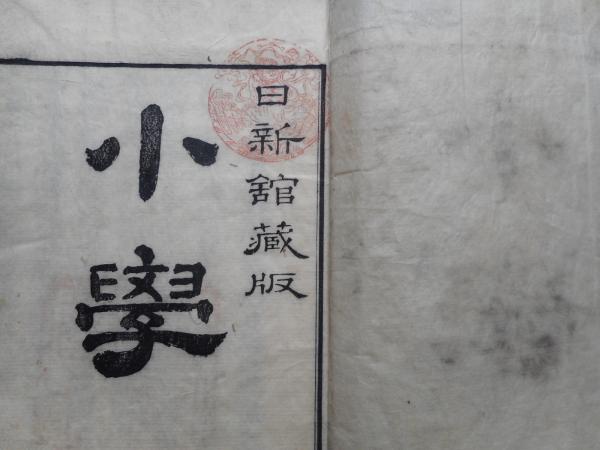 日新館藏版
小學